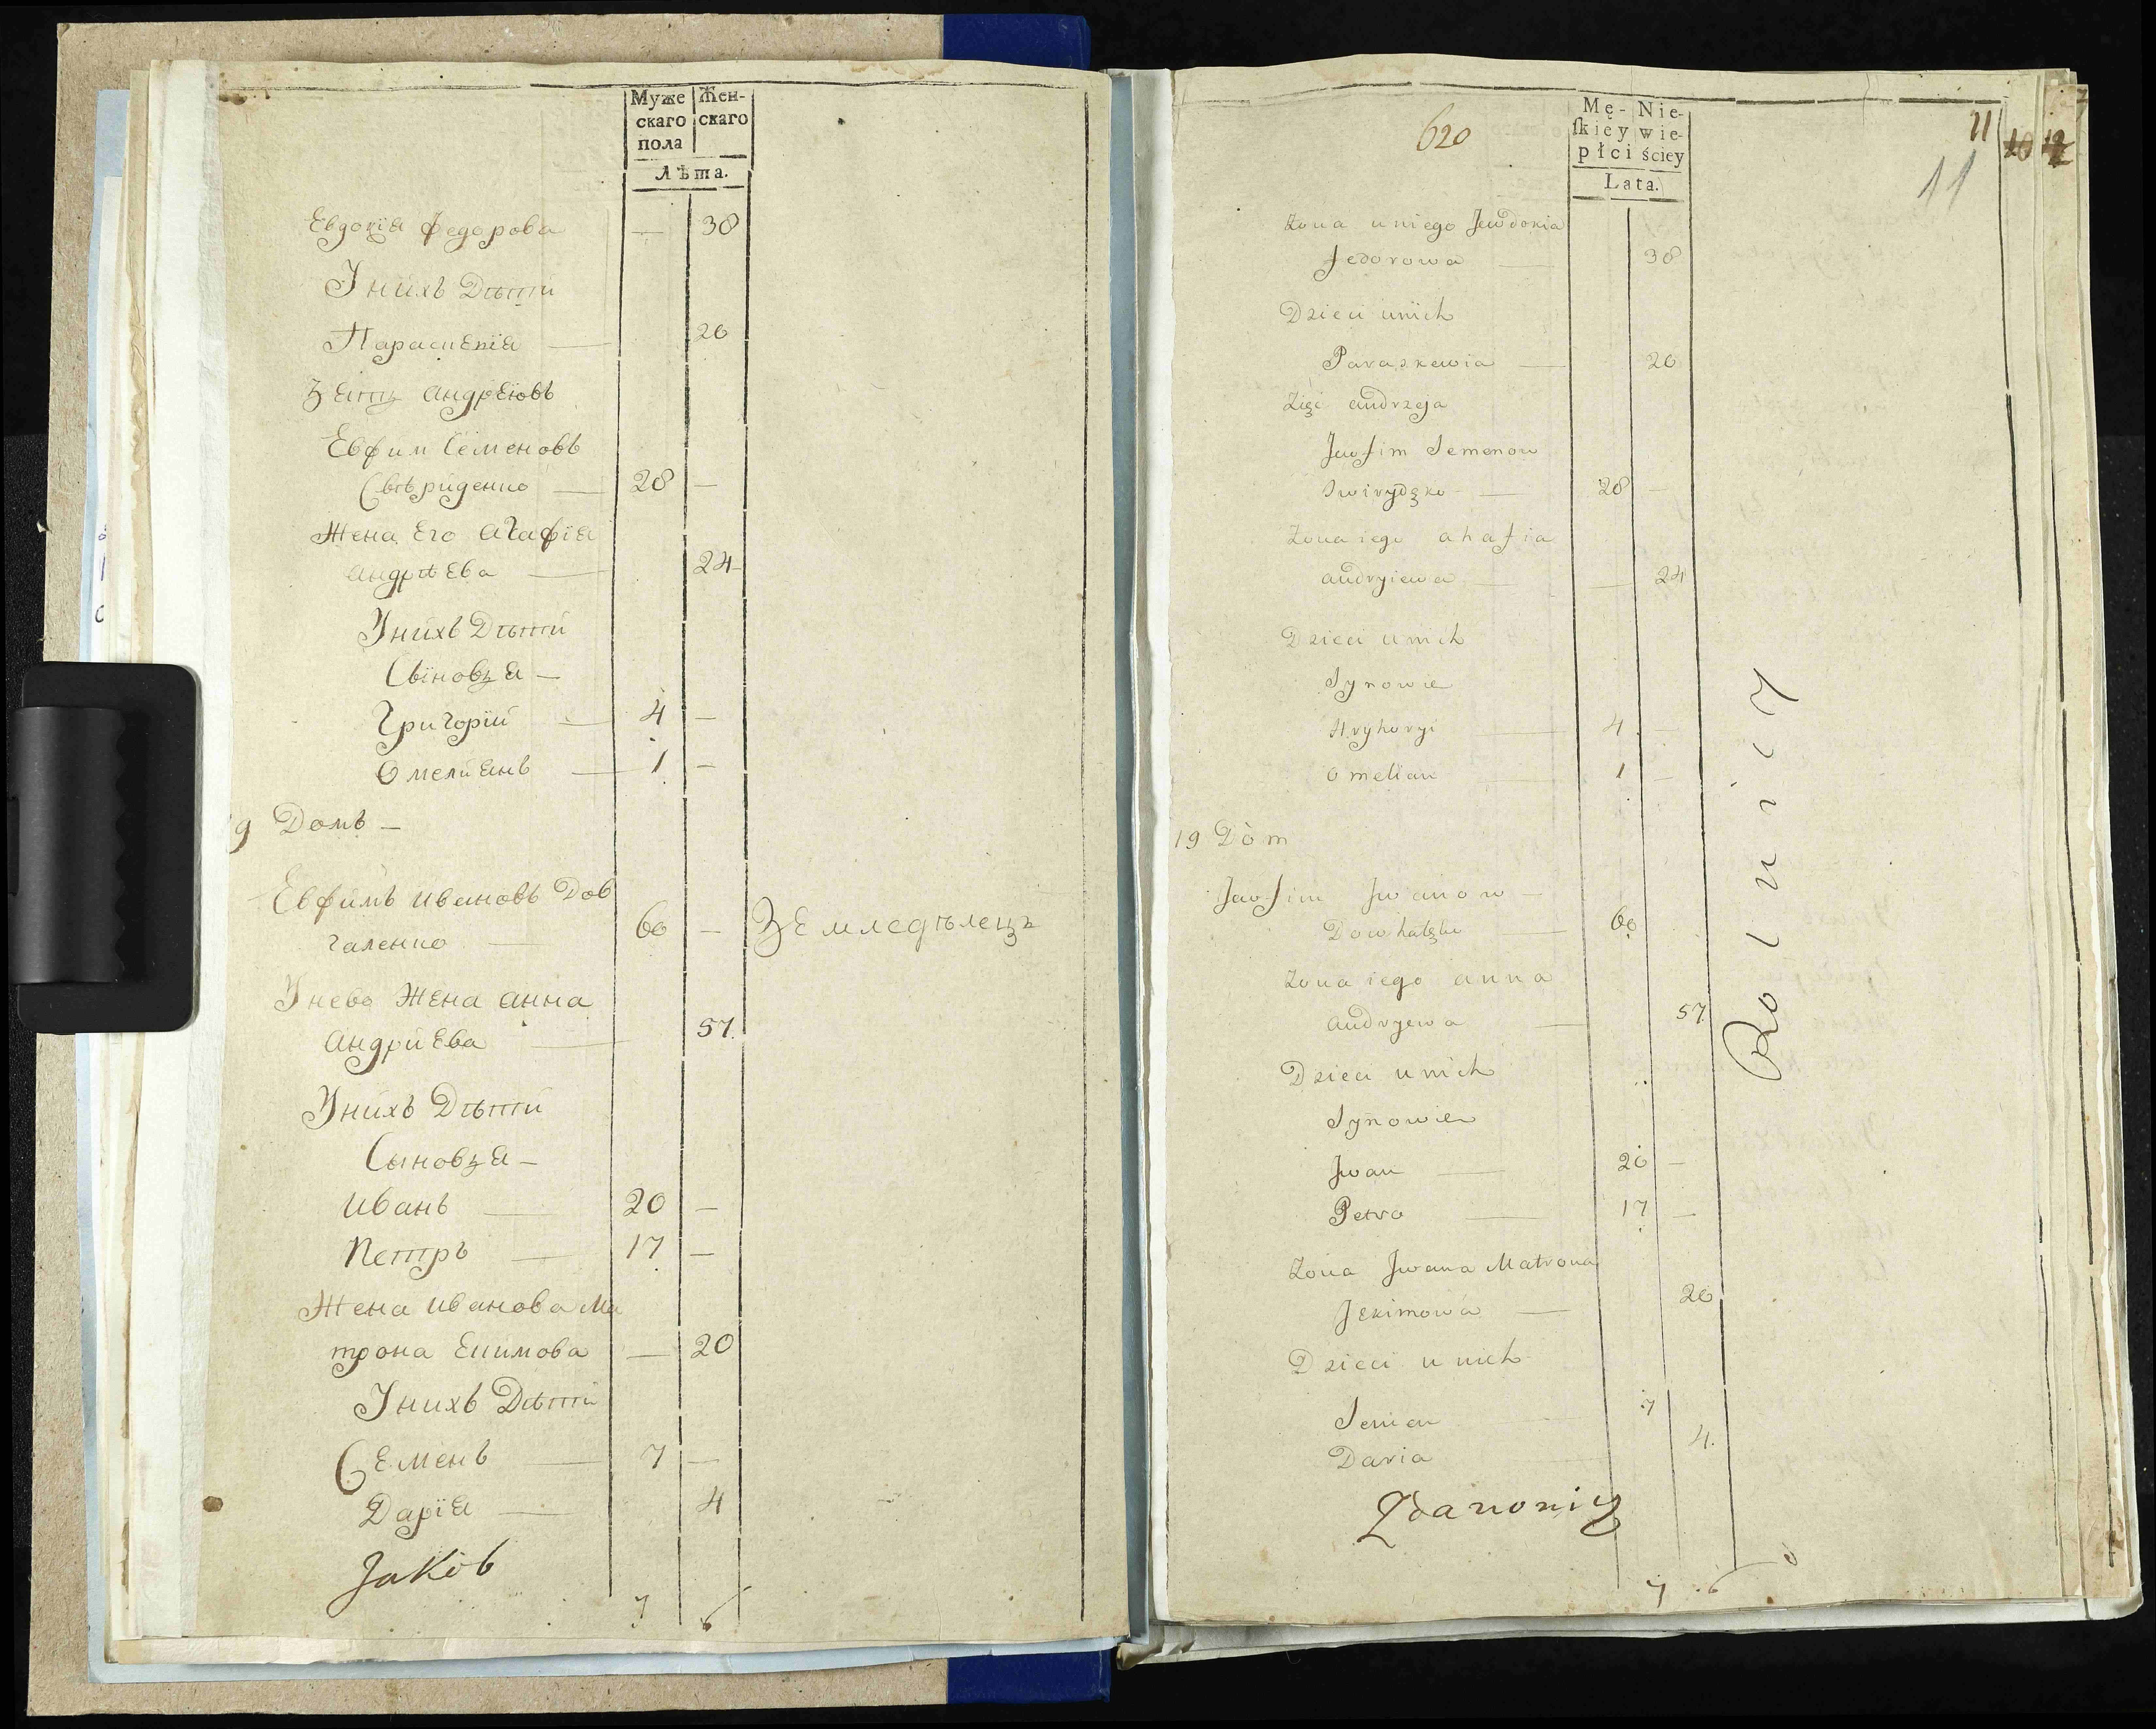 Муже Жен-
скаго скаго
пола
Лѣта.
Евдокія Федорова — 38
Унихъ Дѣти
Параскевія — 20
Зять андрѣювъ
Евфим Семеновъ
Свѣриденко — 28 —
Жена Его агафія
андрѣЕва — 24
Унихъ Дѣти
Сыновья —
Григорій — 4 —
Омелиянъ — 1 —
9 Домъ —
Евфимъ ивановъ Дов
галенко — 60 — Земледѣлецъ
Унево Жена анна
АндриЕва — 57.
Унихъ Дѣти
Сыновья —
иванъ — 20 —
Петръ — 17 —
Жена иванова Ма
трона Екимова — 20
Унихъ Дѣти
СЕменъ — 7 —
Дарія — 4
Jakób
7 6
620
Mę- Nie-
ſkiey wie-
płci ściey
Lata.
11 10 12
11
Żona uniego Jewdokia
Fedorowa — 38
Dzieci unich
Paraskewia — 20
Zięć andrzeja
Jewfim Semenow
Swirydęko — 28 —
Żona iego ahafia
andryiewa — 24
Dzieci unich
Synowie
Hryhoryi — 4 —
omelian — 1 —
19 Dòm
Jewfim Jwanow —
Dowhalęko — 60
Żona iego anna
andryewa — 57
Dzieci unich
Synowie
Jwan — 20 —
Petro — 17 —
Żona Jwana Matrona
Jekimowa — 20
Dzieci unich
Semen 7
Daria 4.
Rolnicy
7 6